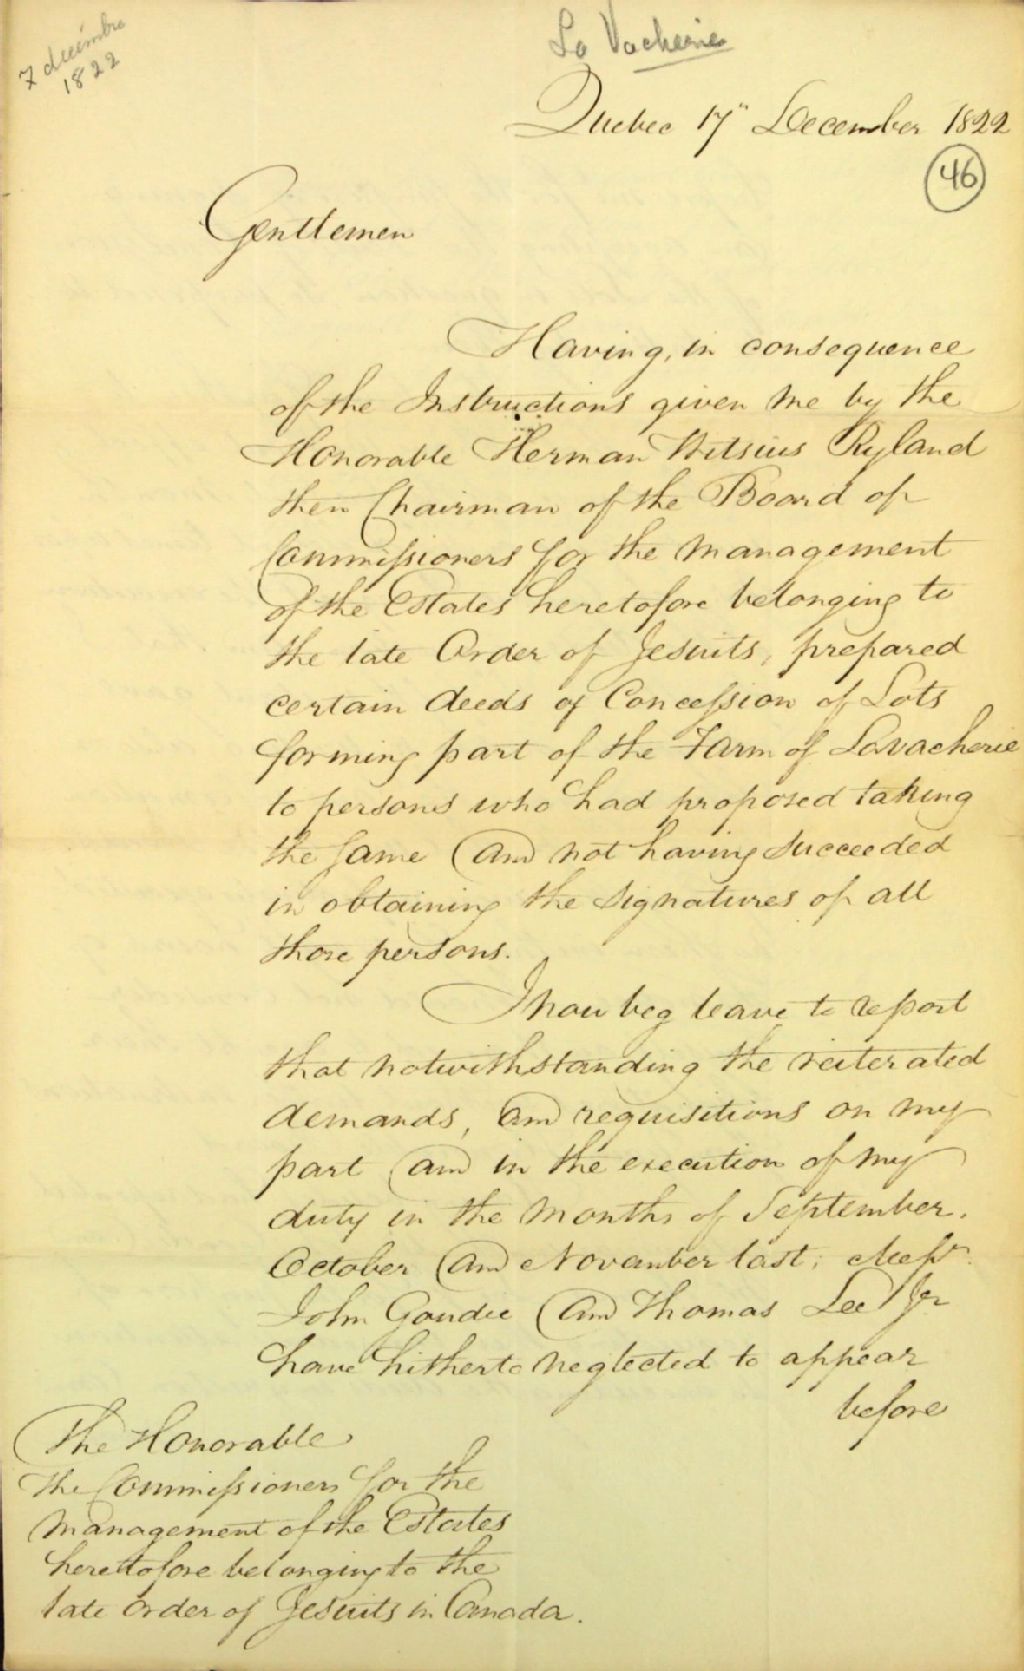 7 décembre
1822
La Vacherie
Quebec 17" December 1822
46
Gentlemen
Having, in consequence
of the Instructions given me by the
Honorable Herman Witsius Ryland
then Chairman of the Board of
Commissioners for the management
of the Estates heretofore belonging to
the late Order of Jesuits, prepared
certain deeds of Concession of Lots
forming part of the Farm of Lavacherie
to persons who had proposed taking
the same and not having succeeded
in obtaining the signatures of all
those persons.
I now beg leave to report
that notwithstanding the reiterated
demands, and requisitions on my
part and in the execution of my
duty in the months of September.
October and November last; Messrs.
John Goudie and Thomas Lee Jr
have hitherto neglected to appear
before
The Honorable
the Commissioners for the
management of the Estates
heretofore belonging to the
late order of Jesuits in Canada.